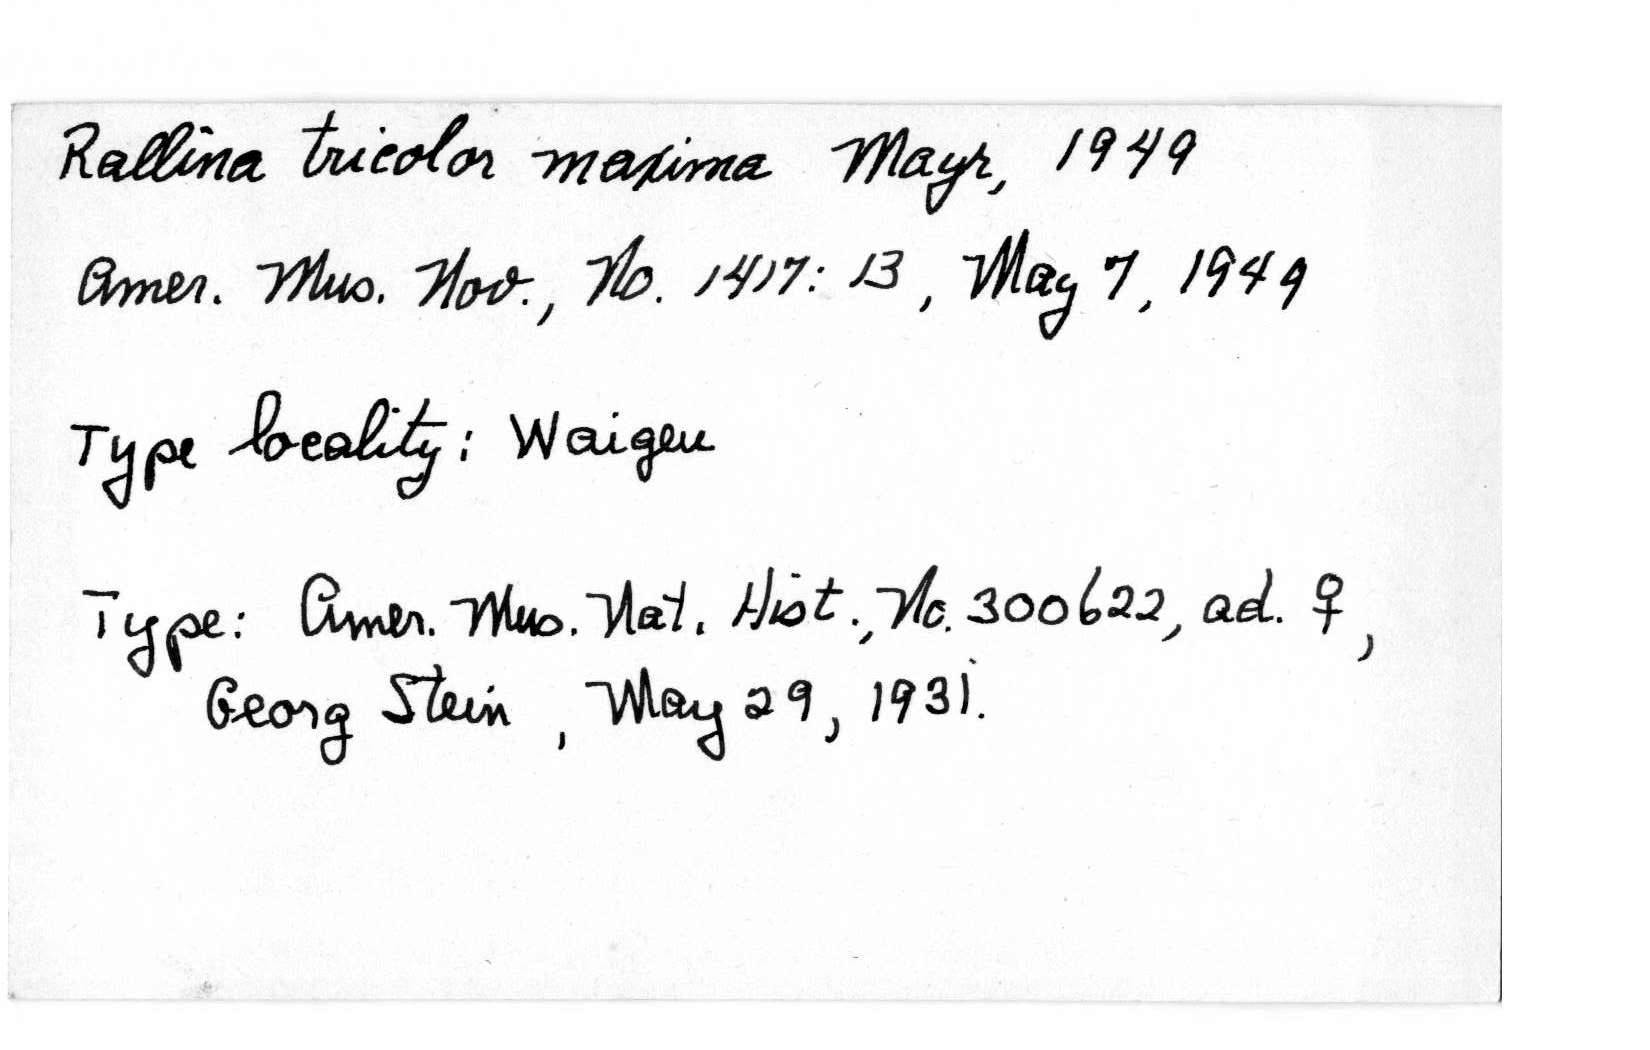 Rallina tricolor maxima Mayr, 1949
Amer. Mus. Nov., No. 1417: 13, May 7, 1949
Type locality: Waigeu
Type: Amer. Mus. Nat. Hist., No. 300622, ad. ♀,
Georg Stein, May 29, 1931.